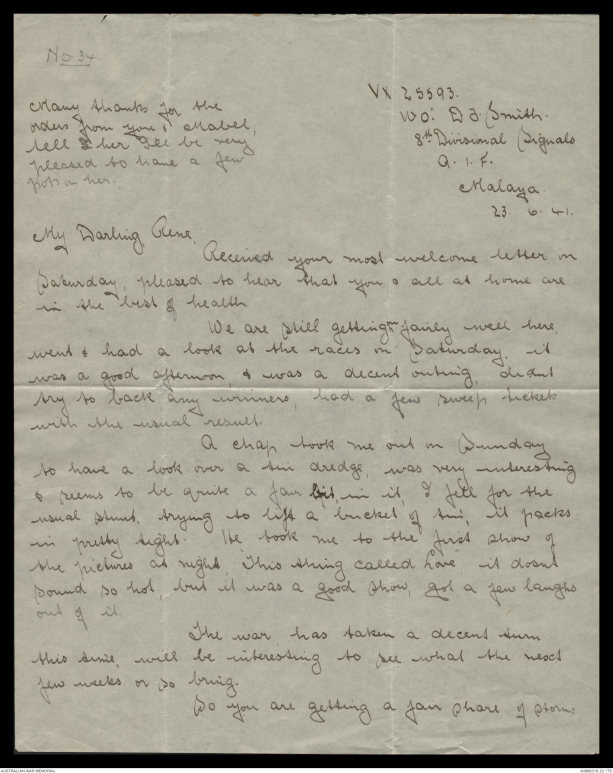 No 34
Many thanks for the
orders from you & Mabel,
tell her I'll be very
pleased to have a few
pots on her.
VX 25593.
WO: D J Smith.
8th Divisional Signals
A. I. F.
Malaya.
23. 6. 41.
My Darling Rene,
Received your most welcome letter on
Saturday, pleased to hear that you & all at home are
in the best of health
We are still getting on fairly well here,
went & had a look at the races on Saturday, it
was a good afternoon, & was a decent outing, didnt
try to back any winners, had a few sweep tickets
with the usual result.
A chap took me out on Sunday
to have a look over a tin dredge, was very interesting
& seems to be quite a fair bit in it, I fell for the
usual stunt, trying to lift a bucket of tin, it packs
in pretty tight. He took me to the first show of
the pictures at night, "This thing called Love" it dosnt
sound so hot, but it was a good show, got a few laughs
out of it.
The war has taken a decent turn
this time, will be interesting to see what the next
few weeks or so bring.
So you are getting a fair share of storms
AUSTRALIAN WAR MEMORIAL